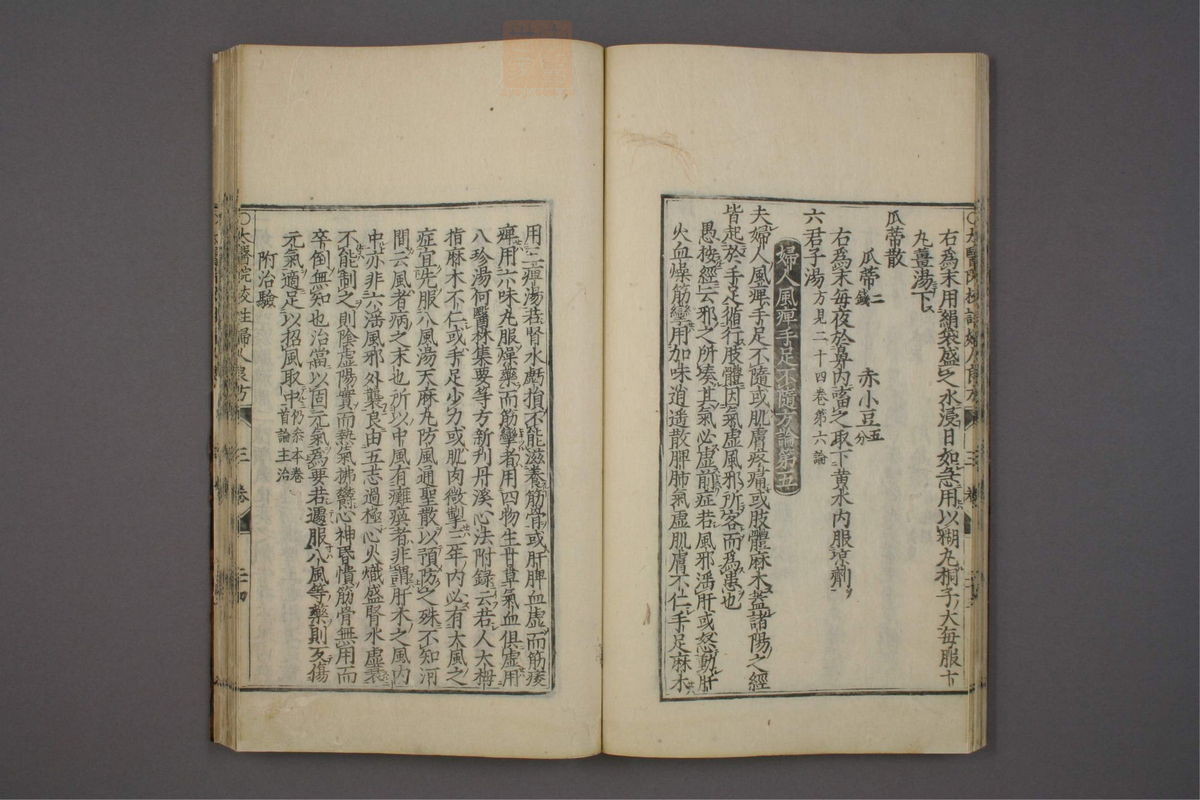 右為末用絹袋盛之水浸一日如急用以糊丸桐子大每服十
丸薑湯下
瓜蒂散
瓜蒂二錢 赤小豆五分
右為末每夜於鼻內畜之取下黃水內服涼劑
六君子湯方見二十四卷第六論
婦人風痺手足不隨方論第五
夫婦人風痺手足不隨或肌膚疼痛或肢體麻木蓋諸陽之經
皆起於手足循行肢體因氣虛風邪所客而為患也
愚按經云邪之所湊其氣必虛前症若風邪滛肝或怒動肝
火血燥筋攣用加味逍遥散脾肺氣虛肌膚不仁手足麻木
用三痺湯若腎水虧損不能滋養筋骨或肝脾血虛而筋痿
痺用六味丸服燥藥而筋攣者用四物生甘草氣血俱虛用
八珍湯何醫林集要等方新刋丹溪心法附錄云若人大栂
指麻木不仁或手足少力或肌肉微掣三年內必有大風之
症宜先服八風湯天麻丸防風通聖散以預防之殊不知河
間云風者病之末也所以中風有癱瘓者非謂肝木之風內
中亦非六滛風邪外襲良由五志過極心火熾盛腎水虛衰
不能制之則陰虛陽實而熱氣拂鬱心神昏憒筋骨無用而
卒倒無知也治當以固元氣為要若遽服八風等藥則反傷
元氣適足以招風取中仍叅本卷首論主治
附治驗
太醫院校註婦人良方 三卷 二十四